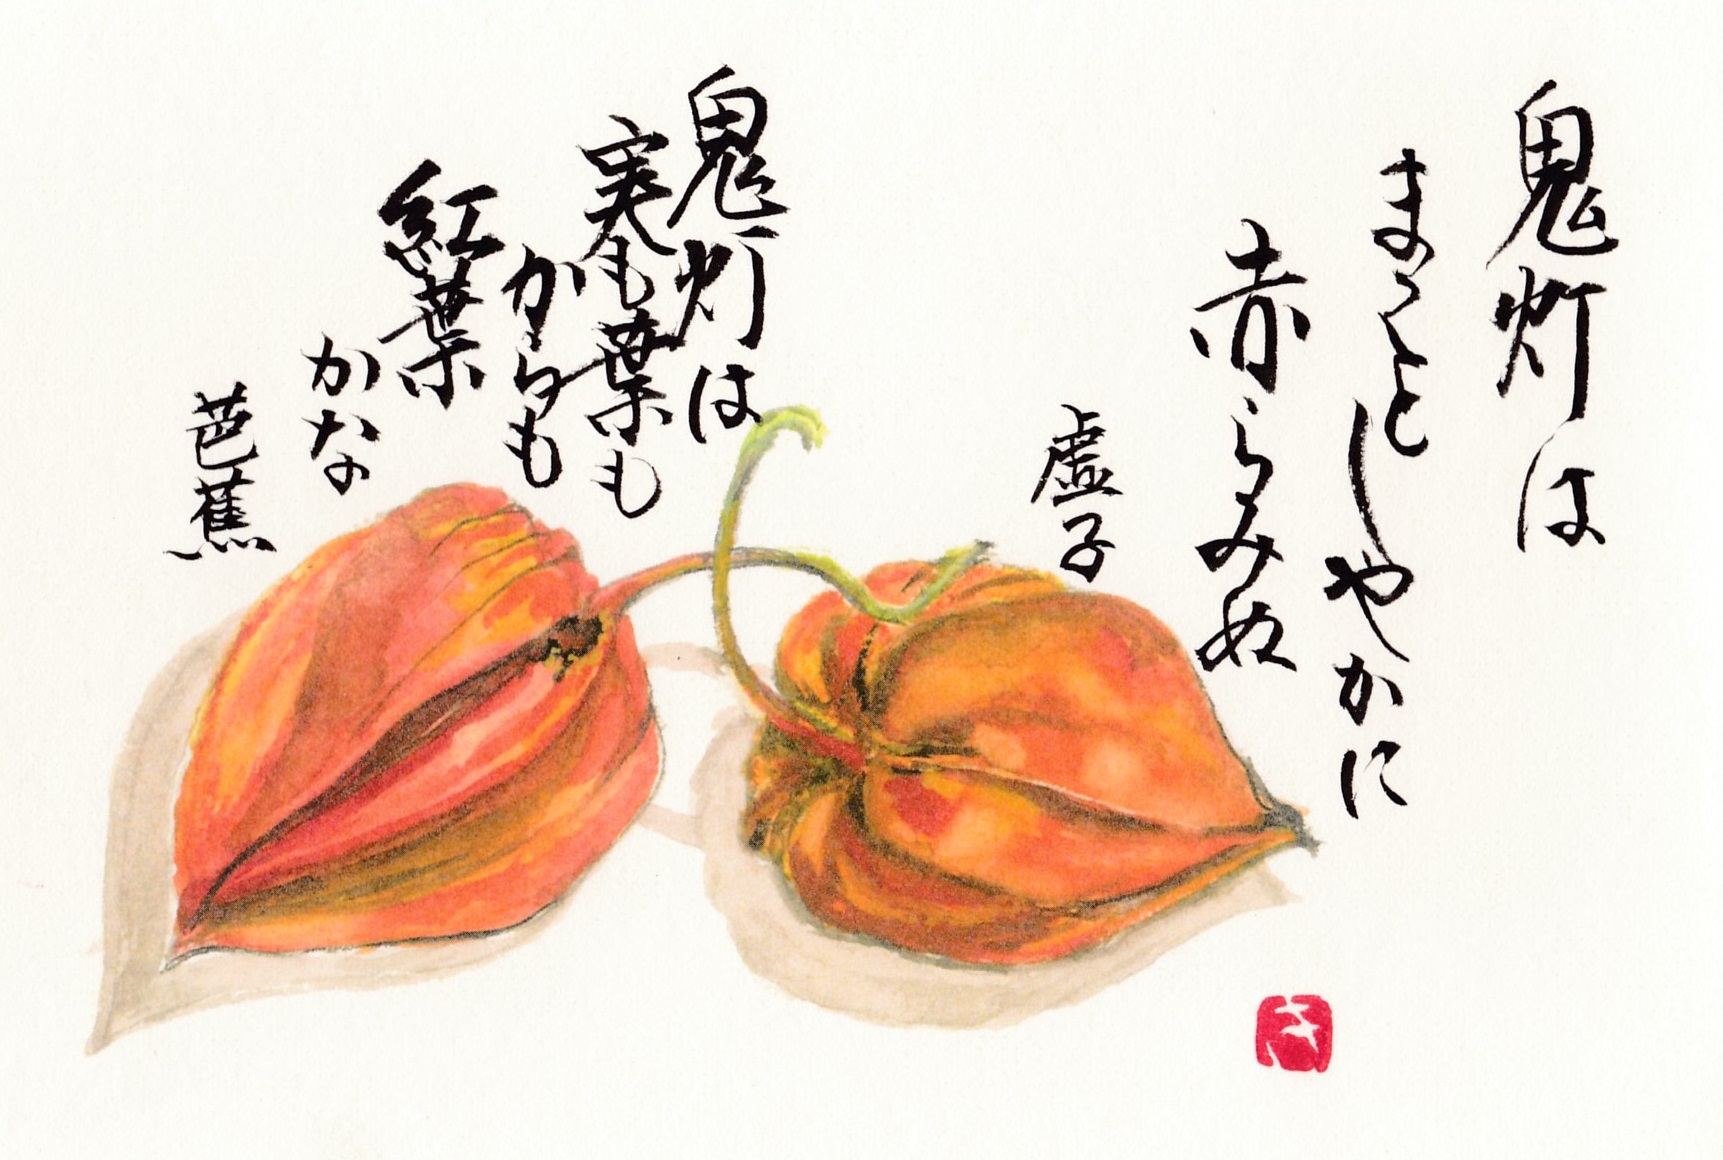 鬼灯は
まことしやかに
赤らみぬ
虚子
鬼灯は
実も葉も
からも
紅葉
かな
芭蕉